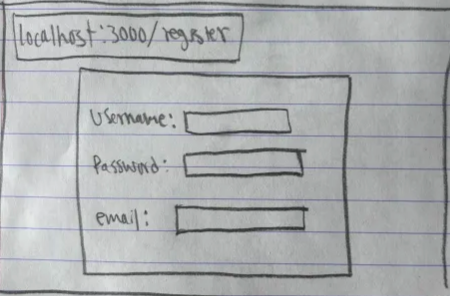 localhost:3000/register
Username:
Password:
email: